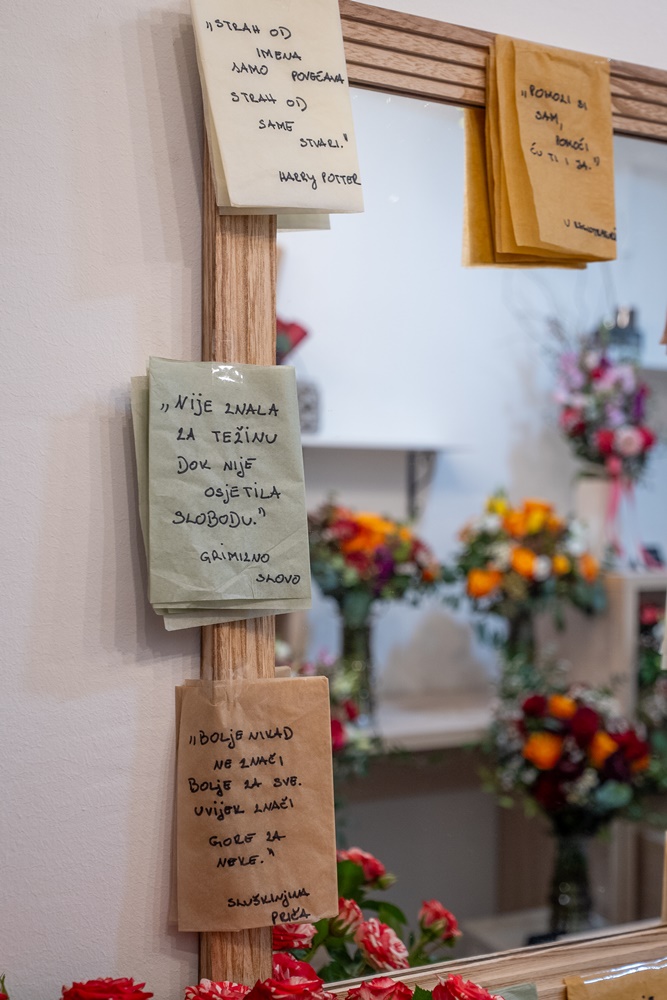 „STRAH OD
IMENA
SAMO POVEĆAVA
STRAH OD
SAME
STVARI."
HARRY POTTER
„POMOZI SI
SAM,
POMOĆI
ĆU TI I JA."
„NIJE ZNALA
ZA TEŽINU
DOK NIJE
OSJETILA
SLOBODU."
GRIMIZNO
SLOVO
„BOLJE NIKAD
NE ZNAČI
BOLJE ZA SVE.
UVIJEK ZNAČI
GORE ZA
NEKE."
SLUŠKINJINA
PRIČA